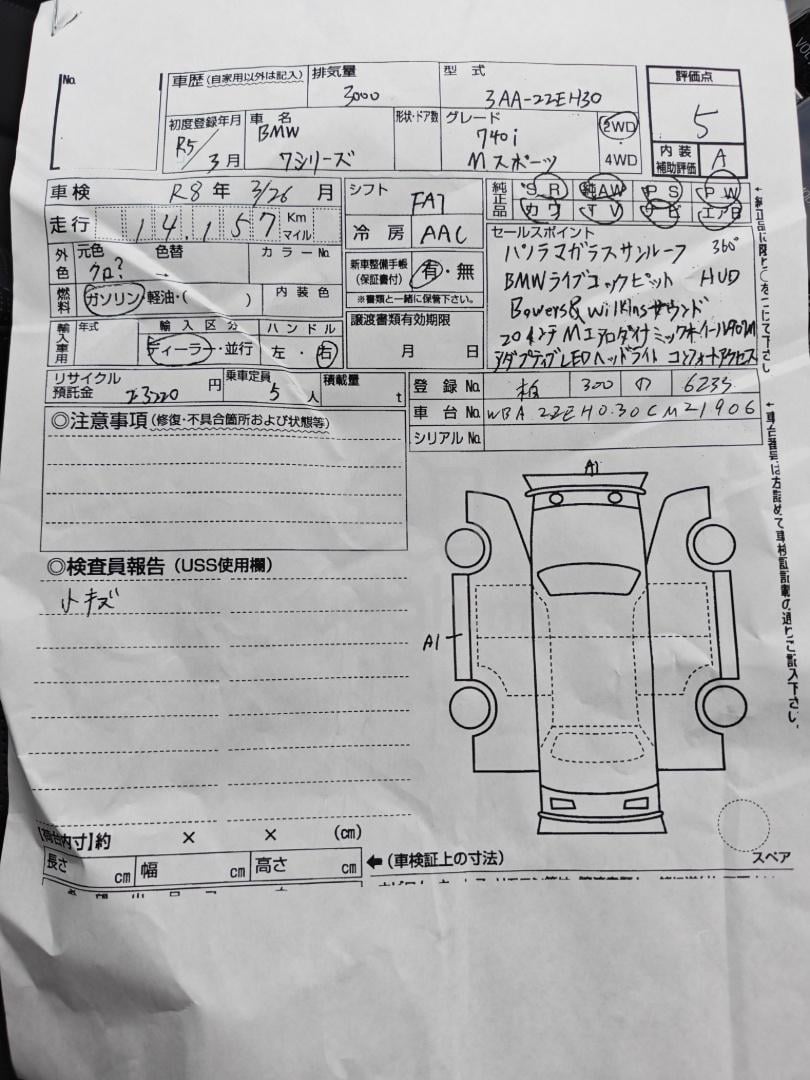 No.
車歴 (自家用以外は記入)
排気量
3000
型式
3AA-22EH30
評価点
5
初度登録年月
R5/3月
車名
BMW
7シリーズ
形状・ドア数
グレード
740i
Mスポーツ
2WD
4WD
内装
補助評価
A
車検 R8年 3/26 月
走行 14,157 Km
マイル
シフト
FA7
冷房 AAC
純正品
SR 純AW PS PW
カワ TV ナビ エアB
外色
元色 色替
クロ? →
カラーNo.
燃料
ガソリン・軽油・( )
内装色
新車整備手帳
(保証書付)
有・無
※書類と一緒に保管下さい。
セールスポイント
パノラマガラスサンルーフ 360°
BMWライブコックピット HUD
Bowers & Wilkinsサウンド
20インチMエアロダイナミックホイール907M
アダプティブLEDヘッドライト コンフォートアクセス
輸入車用
年式
輸入区分
ディーラー・並行
ハンドル
左・右
譲渡書類有効期限
月 日
リサイクル
預託金
円
乗車定員
5人
積載量
t
登録No. 300 の 6235
車台No. WBA22EH030CM21906
シリアルNo.
◎注意事項 (修復・不具合箇所および状態等)
◎検査員報告 (USS使用欄)
小キズ
A1
A1
スペア
【荷台内寸】約 × × (cm)
長さ cm 幅 cm 高さ cm
←(車検証上の寸法)
←車台番号は左詰めで車検証記載の通りご記入下さい。